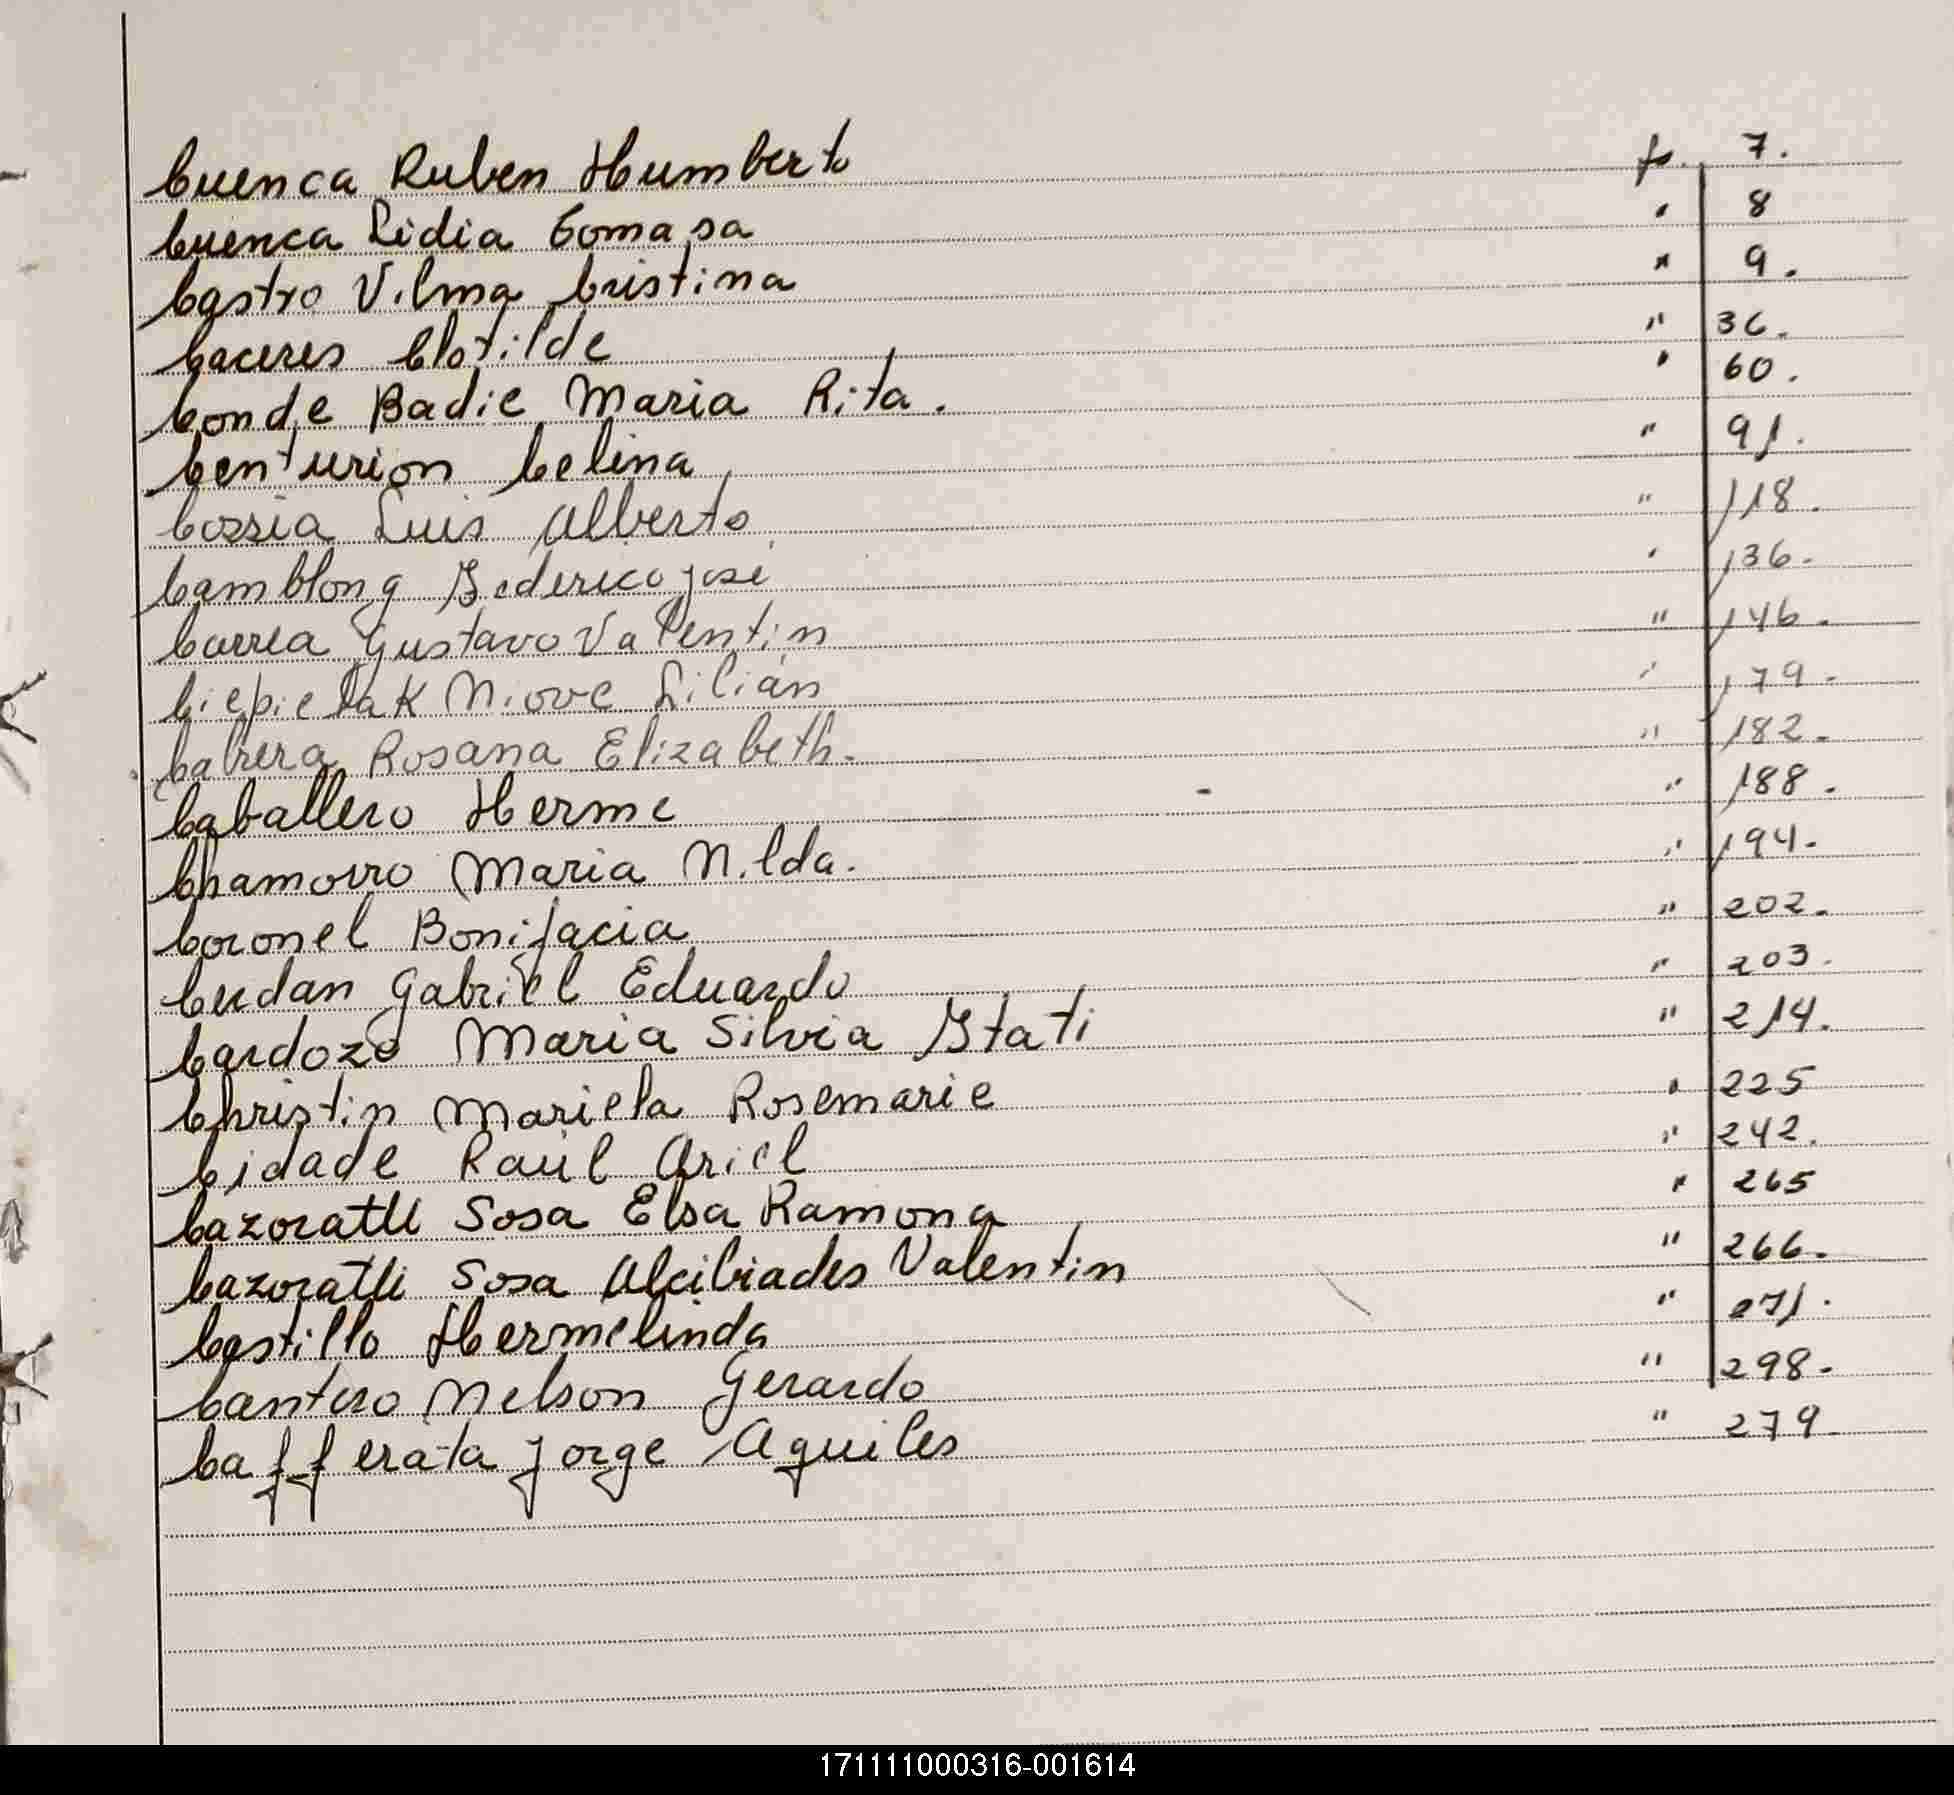 Cuenca Ruben Humberto fs. 7.
Cuenca Lidia Tomasa " 8
Castro Vilma Cristina " 9.
Caceres Clotilde " 36.
Conde Badie Maria Rita. " 60.
Centurion Celina " 91.
Cossia Luis Alberto " 118.
Camblong Federico José " 136.
Correa Gustavo Valentin " 146.
Ciepielak Niove Lilián " 179.
Cabrera Rosana Elizabeth. " 182.
Caballero Herme " 188.
Chamorro Maria Nilda. " 194.
Coronel Bonifacia " 202.
Cerdan Gabriel Eduardo " 203.
Cardozo Maria Silvia Itati " 214.
Christin Mariela Rosemarie " 225
Cidade Raúl Ariel " 242.
Cazoratti Sosa Elsa Ramona " 265
Cazoratti Sosa Alcibiades Valentin " 266.
Castillo Hermelinda " 271.
Cantero Nelson Gerardo " 298.
Cafferata Jorge Aquiles " 279.
171111000316-001614